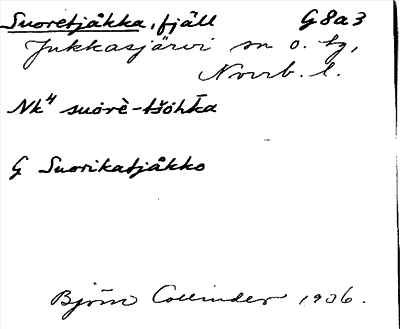 Suoretjåkka, fjäll G8a3
Jukkasjärvi sn o. tg,
Norrb. l.
Nk⁴ suòrè-tšohka
G Suorikatjåkko
Björn Collinder 1906.